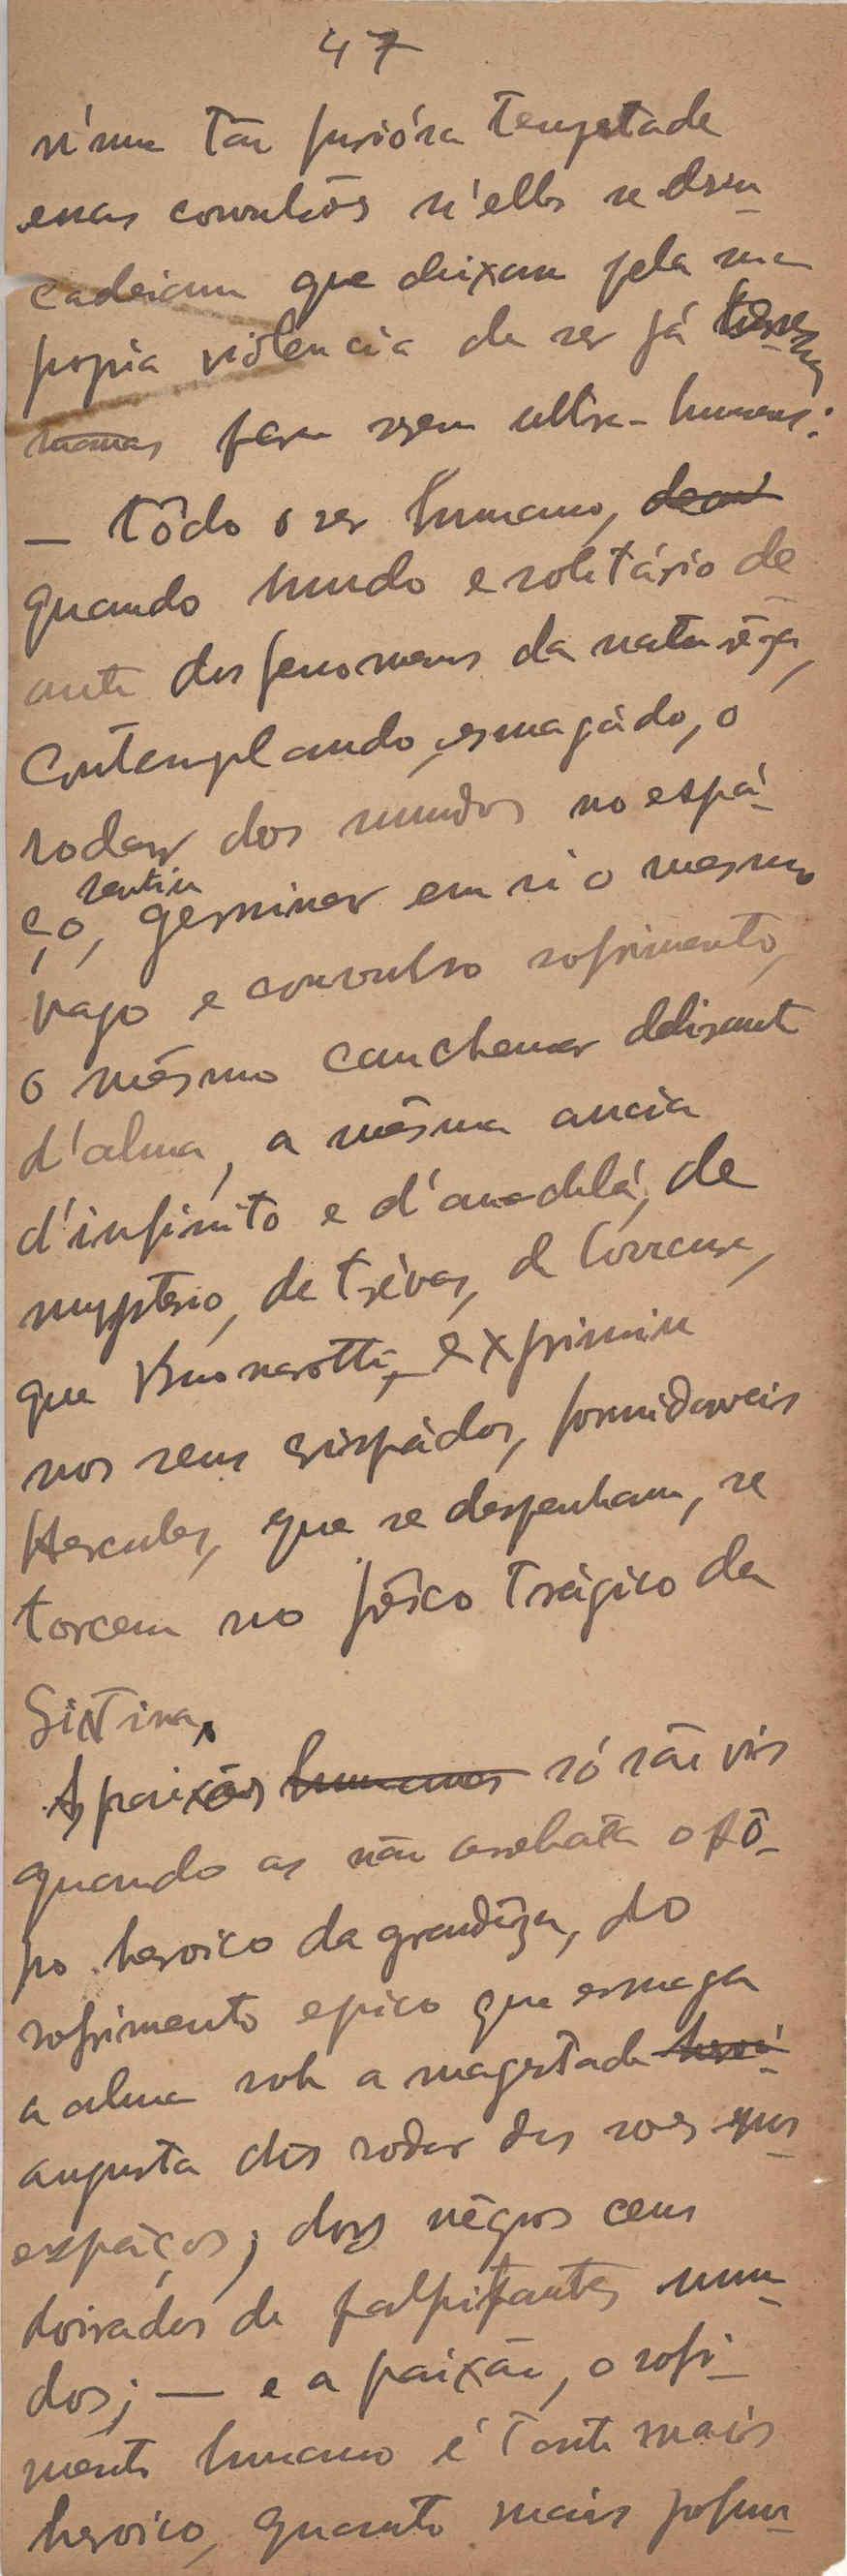 47
n'uma tão furiósa tempestade
essas convulsões n'elles se desen
cadeiam que deixam pela sua
propia violencia de ser já
para serem ultra-humanas:
— Tôdo o ser humano,
quando mudo e solitário de
ante dos fenomenos da naturêza,
contemplando, esmagádo, o
rodar dos mundos no espá-
ço, sentiu germinar em si o mesmo
vago e convulso sofrimento,
o mêsmo cauchemar delirante
d'alma, a mêsma ancia
d'infinito e d'àlém, de
mysterio, de trévas,
que Buonarotti, exprimiu
nos seus crispádos, formidaveis
Hercules, que se despenham, se
torcem no frêsco trágico da
Sixtina.
As paixões humanas só são vis
quando as não arrebata o fô-
go heroico da grandêza, do
sofrimento epico que esmaga
a alma sob a magestade
augusta do rodar dos soes nos
espáços; dos négros ceus
doirados de palpitantes mun-
dos; — e a paixão, o sofri-
mento humano é tanto mais
heroico, quanto mais profun-